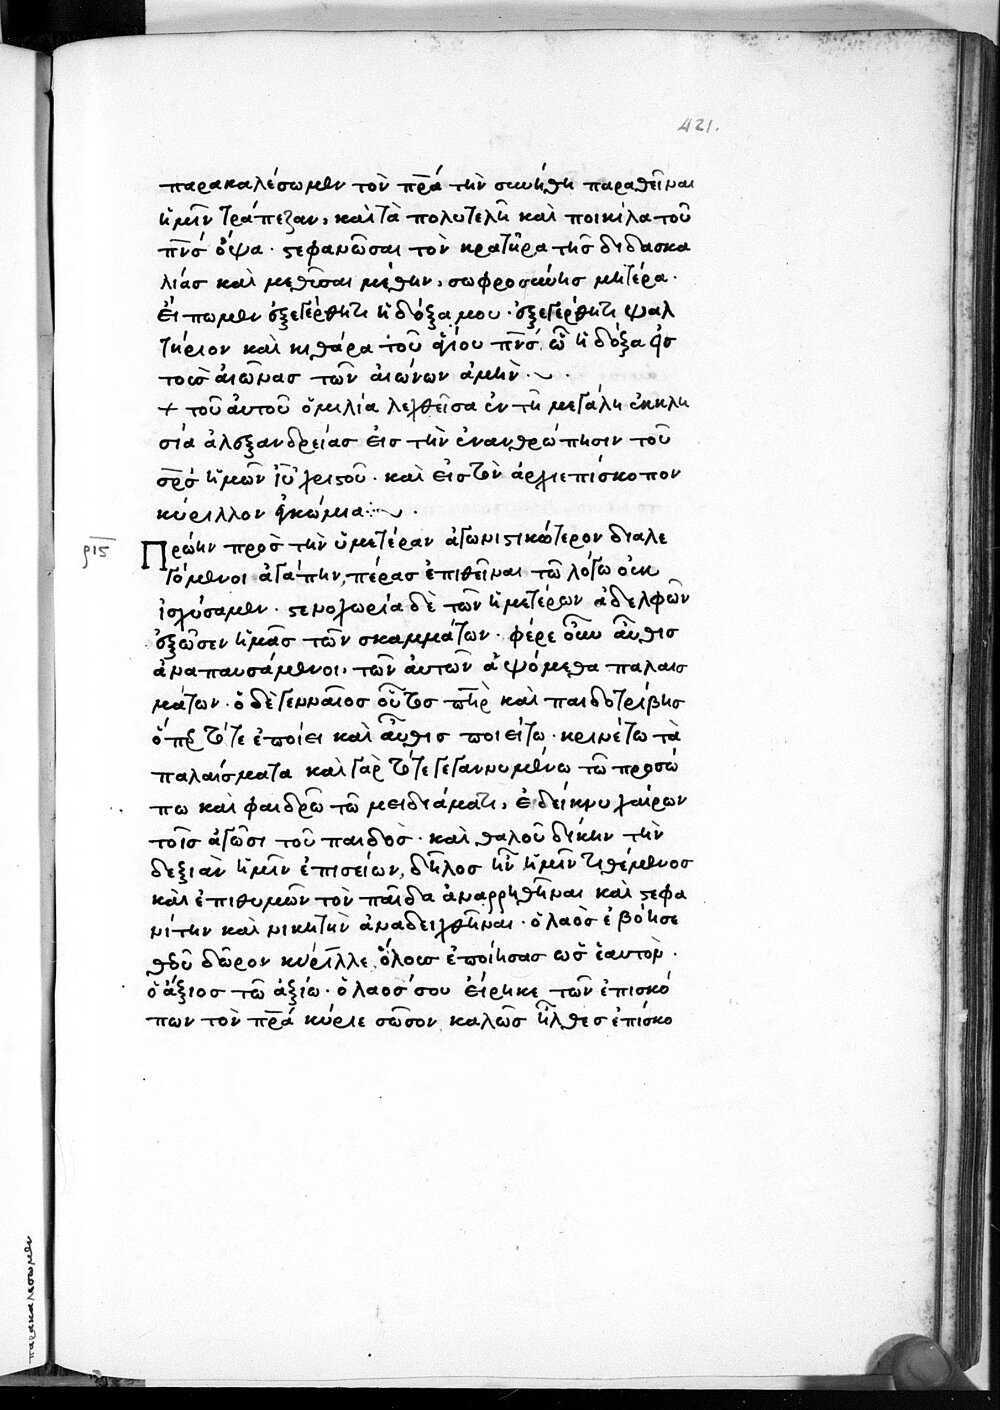 421.
παρακαλέσωμεν τὸν πρ̅ά τὴν συνήθη παραθεῖναι
ἡμῖν τράπεζαν, καὶ τὰ πολυτελῆ καὶ ποικίλα τοῦ
πν̅ς ὄψα · στεφανῶσαι τὸν κρατῆρα τῆς διδασκα
λίας καὶ μεθύσαι μέθην, σωφροσύνης μητέρα ·
εἴπωμεν ἐξεγέρθητι ἡ δόξα μου · ἐξεγέρθητι ψαλ
τήριον καὶ κιθάρα τοῦ ἁγίου πν̅ς ᾧ ἡ δόξα εἰς
τοὺς αἰῶνας τῶν αἰώνων ἀμήν ·
+ τοῦ αὐτοῦ ὁμιλία λεχθεῖσα ἐν τῇ μεγάλῃ ἐκκλη
σίᾳ ἀλεξανδρείας εἰς τὴν ἐνανθρώπησιν τοῦ
σρ̅ς ἡμῶν ιυ̅ χριστοῦ · καὶ εἰς τὸν ἀρχιεπίσκοπον
κύριλλον ἐγκώμια ·
ριϛ̅
Πρώην πρὸς τὴν ὑμετέραν ἀγωνιστικώτερον διαλε
γόμενοι ἀγάπην, πέρας ἐπιθεῖναι τῷ λόγῳ οὐκ
ἰσχύσαμεν · στενοχωρία δὲ τῶν ἡμετέρων ἀδελφῶν
ἐξῶσεν ἡμᾶς τῶν σκαμμάτων · φέρε οὖν αὖθις
ἀναπαυσάμενοι, τῶν αὐτῶν ἁψόμεθα παλαισ
μάτων · ὁ δὲ γενναῖος οὗτος πη̅ρ καὶ παιδοτρίβης
ὅπερ τότε ἐποίει καὶ αὖθις ποιείτω · κρινέτω τὰ
παλαίσματα καὶ γὰρ τότε γεγαννυμένῳ τῷ προσώ
πῳ καὶ φαιδρῷ τῷ μειδιάματι, ἐδείκνυ χαίρων
τοῖς ἀγῶσι τοῦ παιδὸς · καὶ θαλοῦ δίκην τὴν
δεξιὰν ἡμῖν ἐπισείων, δῆλος ἦν ἡμῖν τιθέμενος
καὶ ἐπιθυμῶν τὸν παῖδα ἀναρρηθῆναι καὶ στεφα
νίτην καὶ νικητὴν ἀναδειχθῆναι · ὁ λαὸς ἐβόησε
θεοῦ δῶρον κύριλλε, ὅλους ἐποίησας ὡς ἑαυτὸν ·
ὁ ἄξιος τῷ ἀξίῳ · ὁ λαός σου εἴρηκε τῶν ἐπισκό
πων τὸν πρ̅ά κύριε σῶσον καλῶς ἦλθες ἐπίσκο
παρακαλέσωμεν